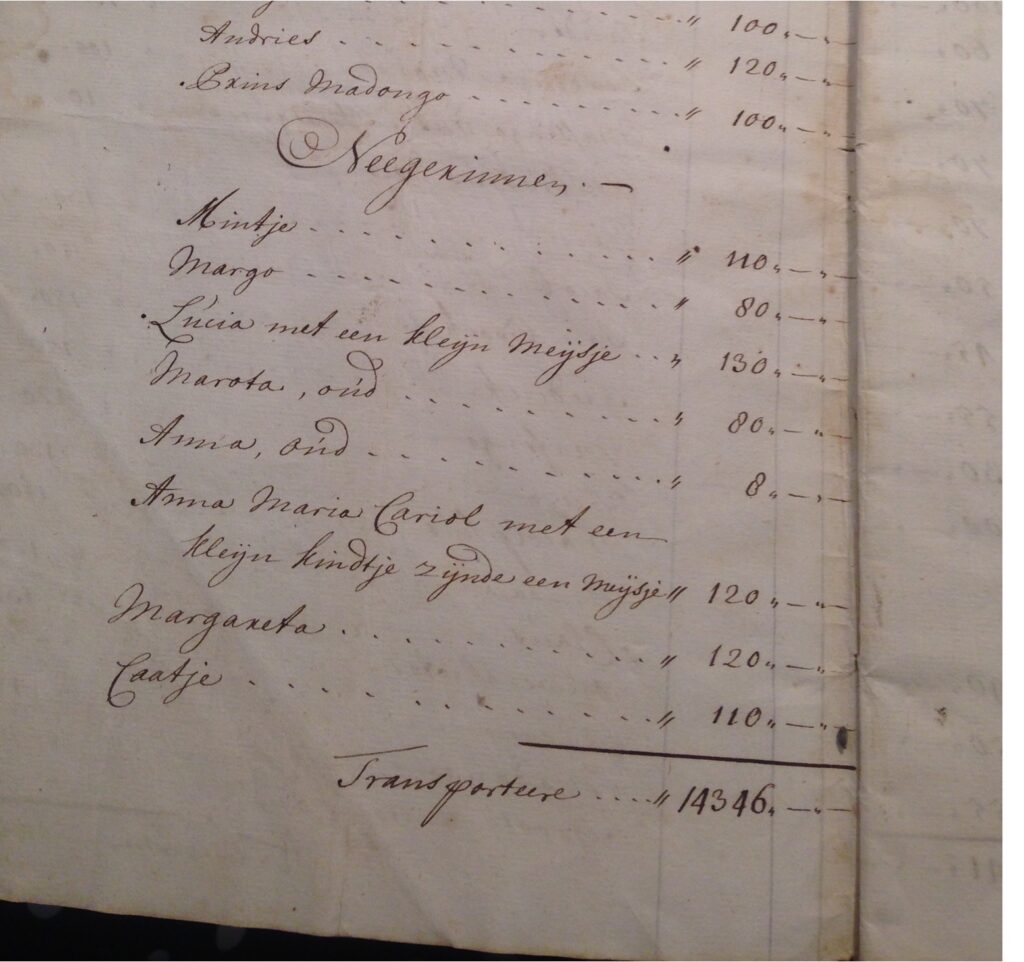 " 100„—„
Andries . . . . . . . . . . " 120„—„
Prins Madongo . . . . . . . . " 100„—„
Neegerinnen. —
Mintje . . . . . . . . . . . " 110„—„
Margo . . . . . . . . . . . " 80„—„
Lúcia met een kleyn Meÿsje . . " 130„—„
Marota, oúd . . . . . . . . . " 80„—„
Anna, oúd . . . . . . . . . " 8„—„
Anna Maria Cariol met een
kleyn kindtje zÿnde een Meÿsje " 120„—„
Margareta . . . . . . . . . " 120„—„
Caatje . . . . . . . . . . " 110„—„
Transporteere . . . . " 14346„—„